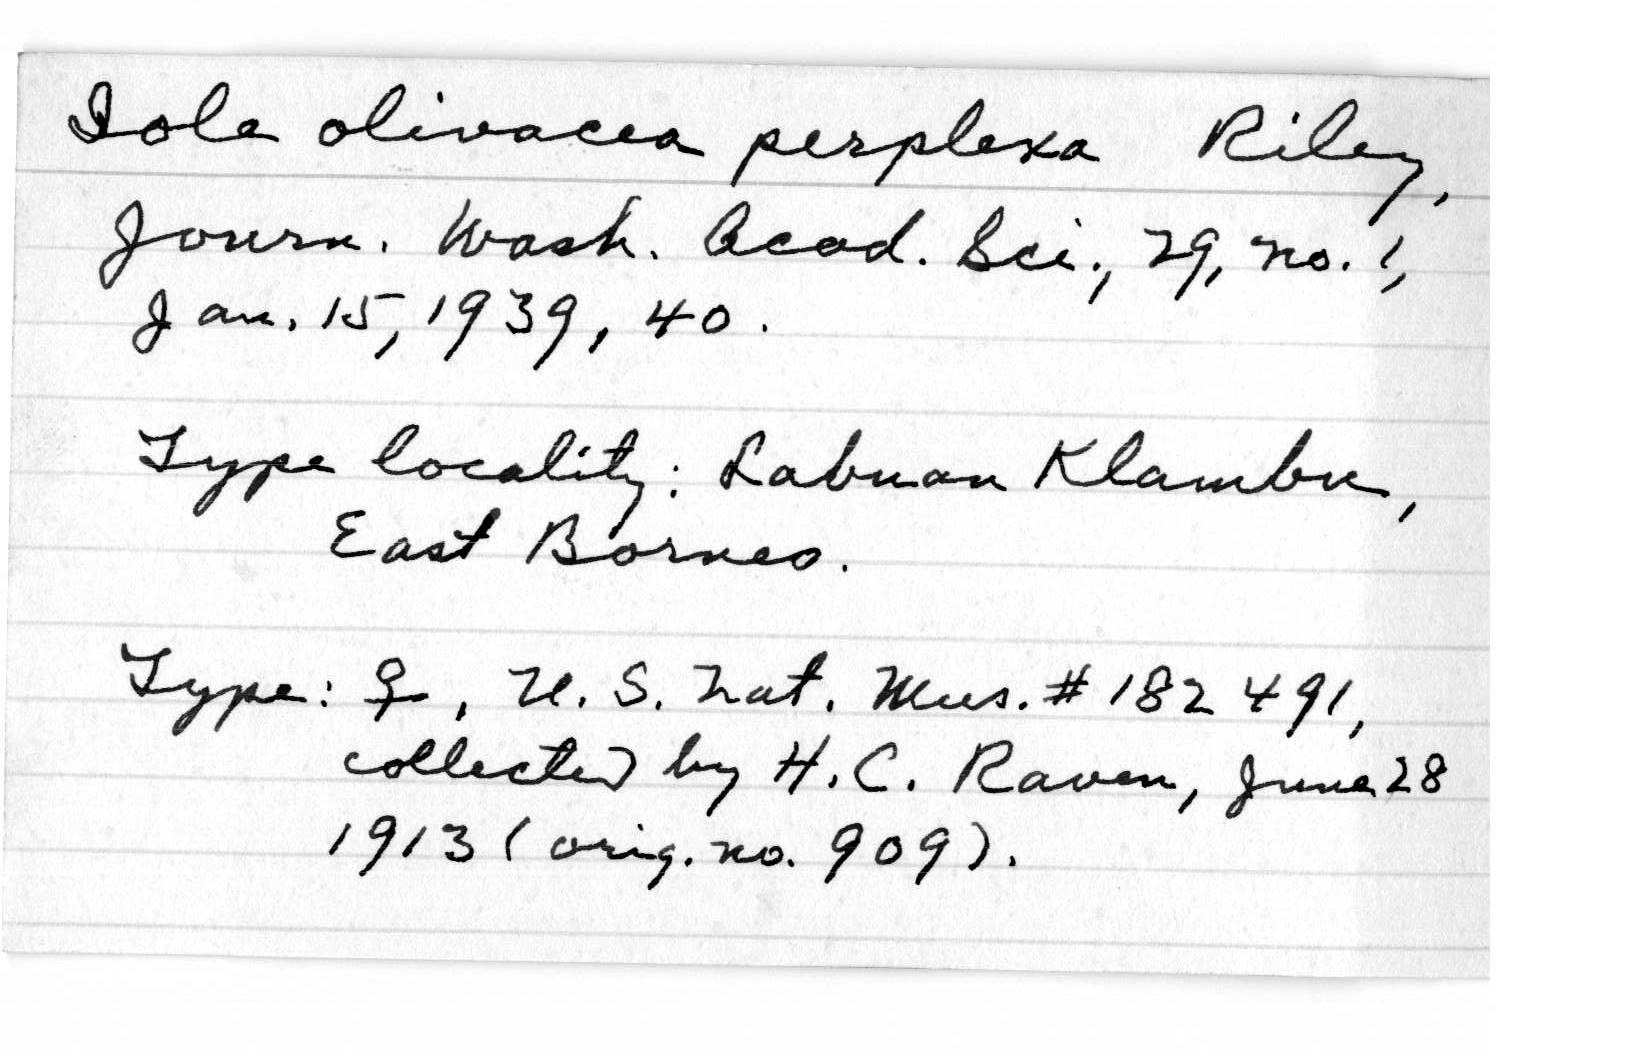 Iole olivacea perplexa Riley,
Journ. Wash. Acad. Sci., 29, no. 1,
Jan. 15, 1939, 40.
Type locality: Labuan Klambu,
East Borneo.
Type: ♀, U. S. Nat. Mus. # 182491,
collected by H. C. Raven, June 28
1913 (orig. no. 909).